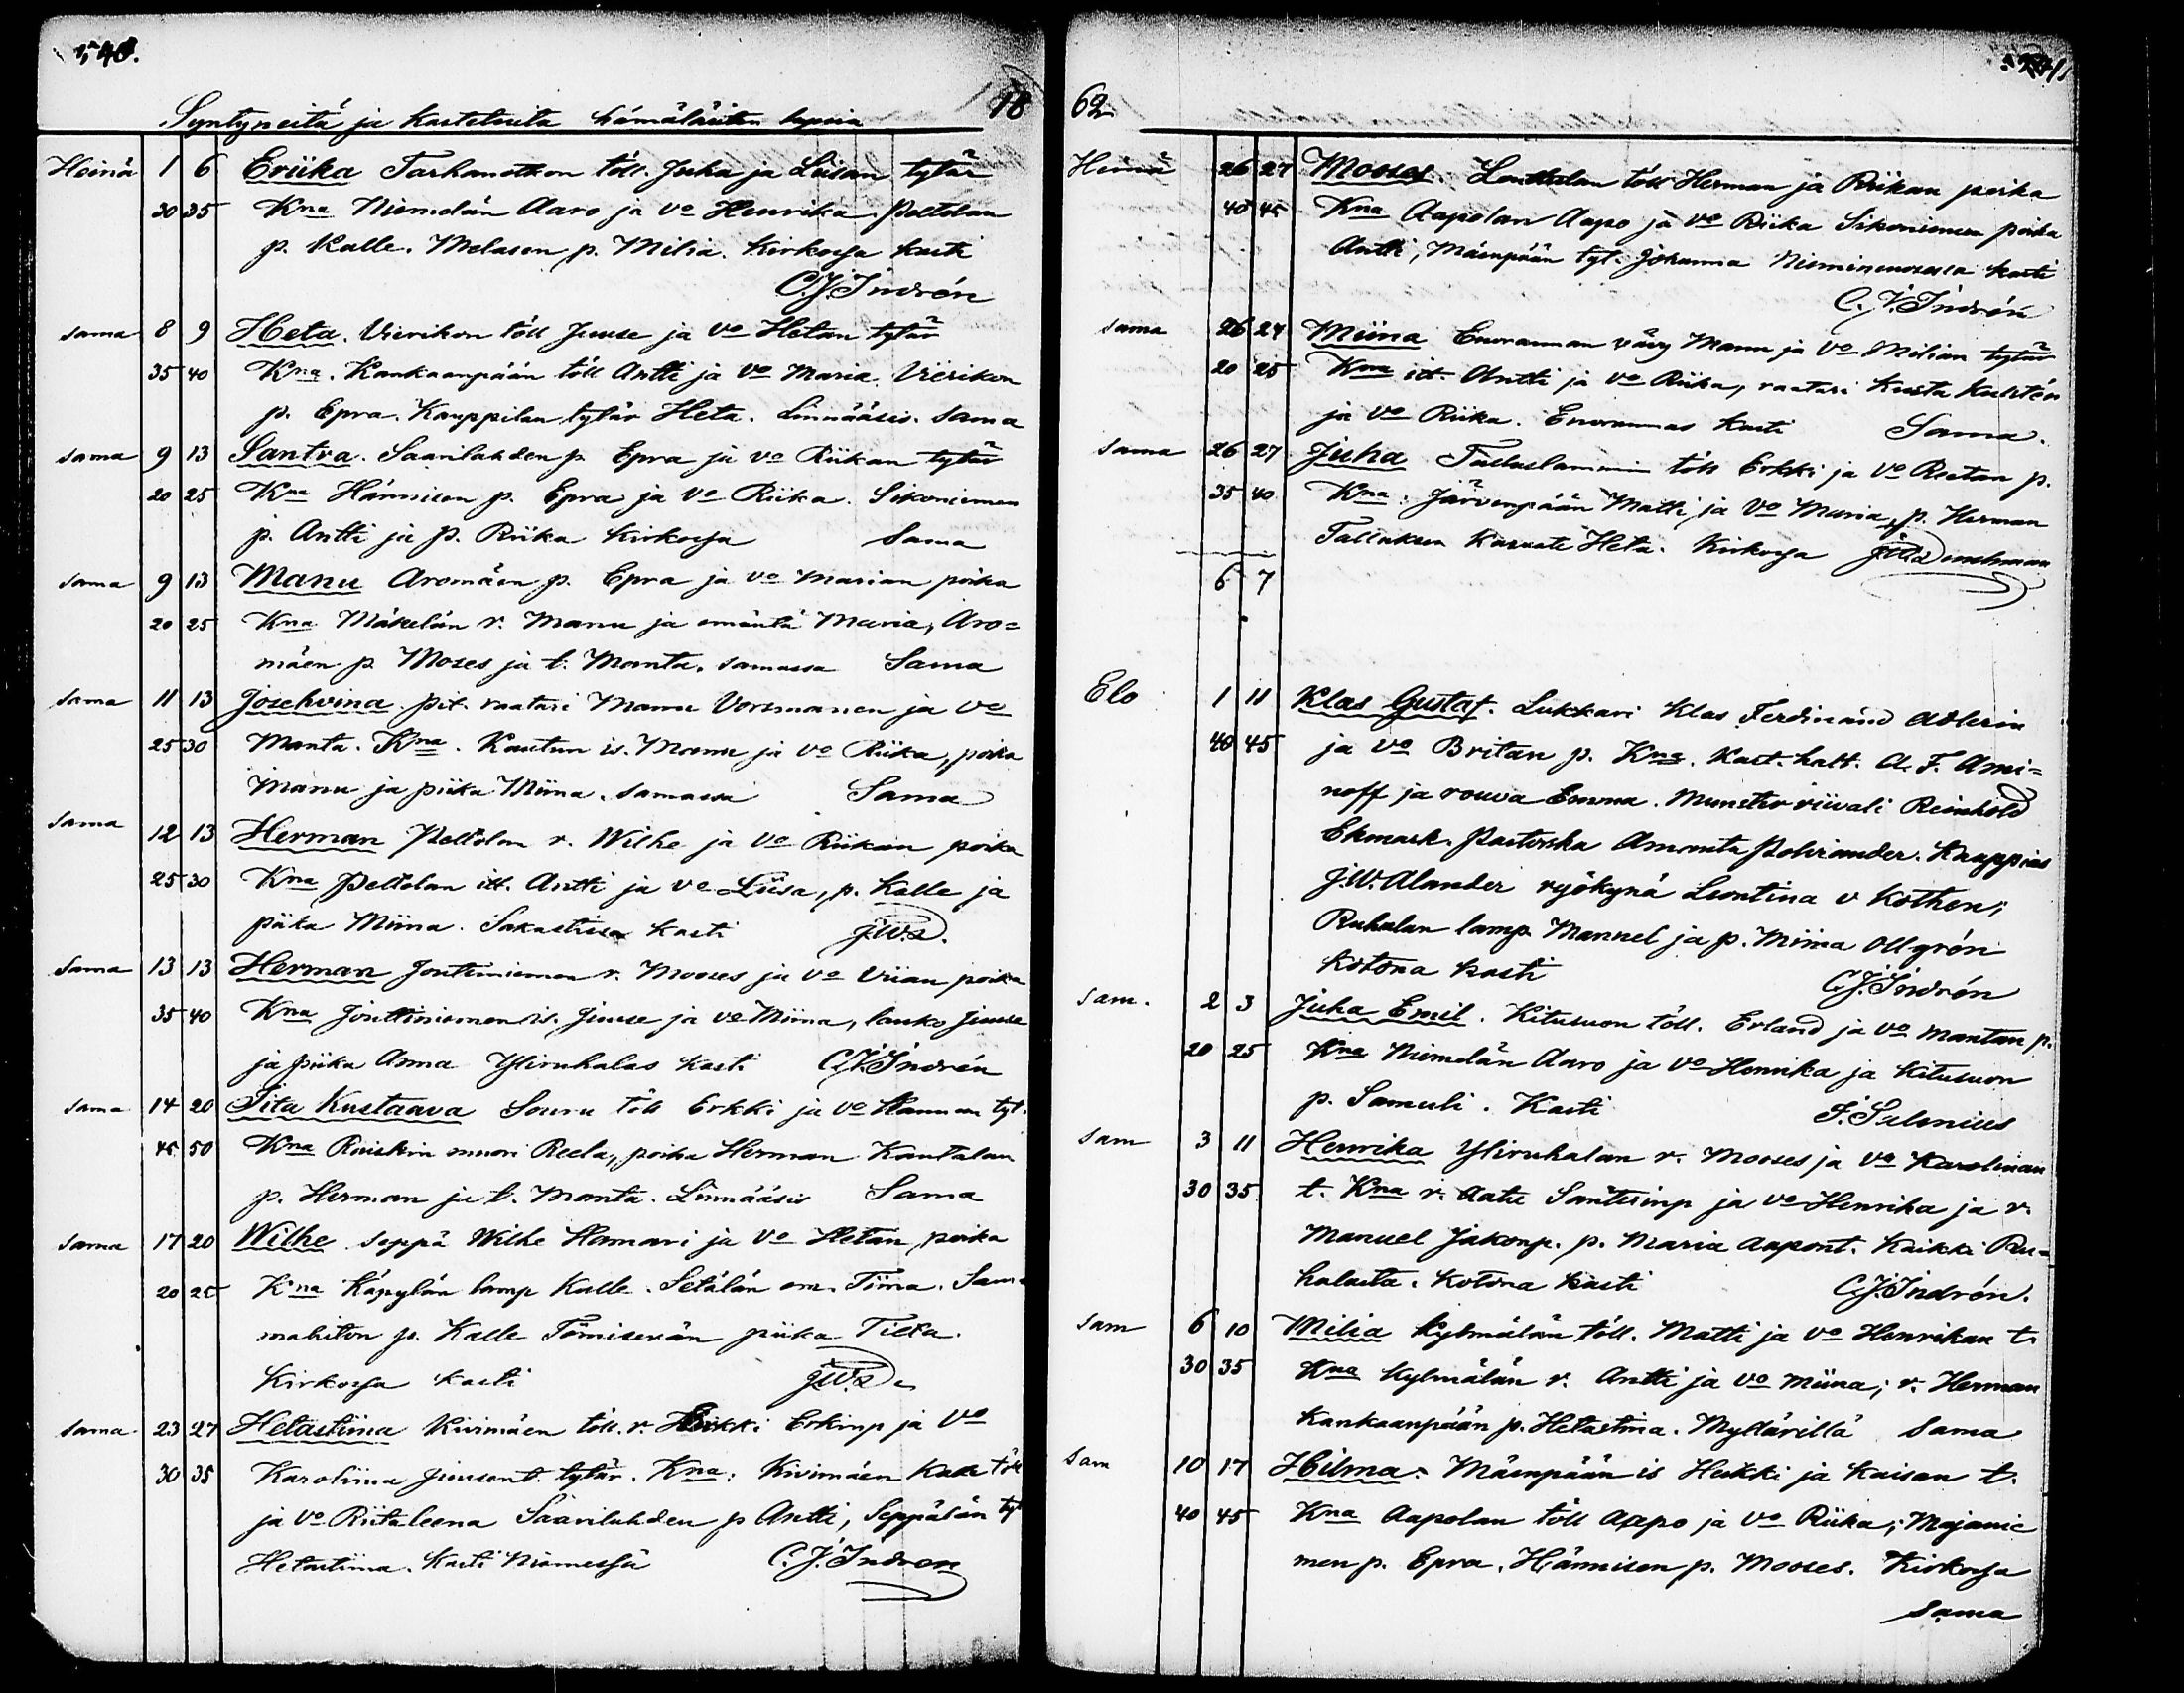 540.
Syntyneitä ja kastetuita hämäläisten lapsia 18
Heinä 1 6 Eriika Tarhanotkon töll. Juha ja Liisan tytär
30 35 Kna Niemelän Aaro ja vo Henrika. Peltolan
p. Kalle. Melasen p. Milia. Kirkossa kasti
C.J. Indrén
sama 8 9 Heta. Vierikon töll Juuse ja vo Hetan tytär
35 40 Kna. Kankaanpään töll Antti ja vo Maria. Vierikon
p. Epra. Kauppilan tytär Heta. Linnääsis. Sama
sama 9 13 Santra. Saarilahden p. Epra ja vo Riikan tytär
20 25 Kna Hännisen p. Epra ja vo Riika. Sikoniemen
p. Antti ja p. Riika Kirkossa Sama
sama 9 13 Manu Aromäen p. Epra ja vo Marian poika
20 25 Kna Mäkelän r. Manu ja emäntä Maria, Aro=
mäen p Moses ja t. Manta. samassa Sama
sama 11 13 Josehvina. pit. raatari Manu Vorsmanen ja vo
25 30 Manta. Kna. Kautun is. Manu ja vo Riika, poika
Manu ja piika Miina. samassa Sama
sama 12 13 Herman Peltolan r. Wilhe ja vo Riikan poika
25 30 Kna Peltolan itt. Antti ja vo Liisa, p. Kalle ja
piika Miina. Sakastissa kasti J.W.D.
sama 13 13 Herman Jonttiniemen r. Mooses ja vo Viian poika
35 40 Kna Jonttiniemen is. Juuse ja vo Miina, lanko Juuse
ja piika Anna Yliruhalas kasti C.J. Indrén
sama 14 20 Iita Kustaava Souru töll Erkki ja vo Hannan tyt.
45 50 Kna Ruiskin muori Reela, poika Herman Kautalan
p. Herman ja t. Manta. Linnääsis Sama
sama 17 20 Wilhe seppä Wilhe Hamari ja vo Hetan poika
20 25 Kna Käpylän lamp Kalle. Setälän em. Tiina. Sam=
mahiton p. Kalle Tömisevän piika Tilta.
Kirkossa kasti J.W.D.
sama 23 27 Hetastiina Kivimäen töll. r. Heikki Erkinp ja vo
30 35 Karoliina Juusent. tytär. Kna: Kivimäen Kalle töll
ja vo Riitaleena Saarilahden p Antti, Seppälän tyt
Hetastiina. Kasti Niemessä C.J. Indren
62
Heinä 26 27 Mooses. Lauttalan töll Herman ja Riikan poika
40 45 Kna Aapolan Aapo ja vo Riika Sikoniemen poika
Antti, Mäenpään tyt. Johanna Nieminenosassa kasti
C.J. Indrén
sama 26 27 Miina Enorannan vävy Manu ja vo Milian tytär
20 25 Kna itt. Antti ja vo Riika, raatari Kusta Kultén
ja vo Riika. Enorannas kasti Sama.
sama 26 27 Juha Talluslammin töll Erkki ja vo Reetan p.
35 40 Kna. Järvenpään Matti ja vo Maria, p. Herman
Talluksen kasvate Heta. Kirkossa
6 7
Elo 1 11 Klas Gustaf. Lukkari Klas Ferdinand Adlerin
40 45 ja vo Britan p. Kna. Kart. halt. A. F. Ami=
noff ja rouva Emma. Munsterriivali Reinhold
Ekmark. Pastorska Amanta Polviander. Knappias
J.W. Alander ryökynä Leontina v Kothen;
Ruhalan lamp. Manuel ja p. Miina Ollgrén
kotona kasti C.J. Indrén
sam. 2 3 Juha Emil. Kitusuon töll. Erland ja vo Mantan p.
20 25 Kna Niemelän Aaro ja vo Henrika ja Kitusuon
p. Samuli. Kasti F. Salenius
sam 3 11 Henrika Yliruhalan r. Mooses ja vo Karolinan
30 35 t. Kna r. Aatu Santerinp ja vo Henrika ja r.
Manuel Jakonp. p. Maria Aapont. Kaikki Ru=
halasta. Kotona kasti C.J. Indrén.
sam 6 10 Milia Kylmälän töll. Matti ja vo Henrikan t.
30 35 Kna Kylmälän r. Antti ja vo Miina; r. Herman
Kankaanpään p. Hetastina. Myllärillä Sama
sam 10 17 Hilma. Mäenpään is Heikki ja Kaisan t.
40 45 Kna Aapolan töll Aapo ja vo Riika; Majanie
men p. Epra. Hännisen p. Mooses. Kirkossa
Sama